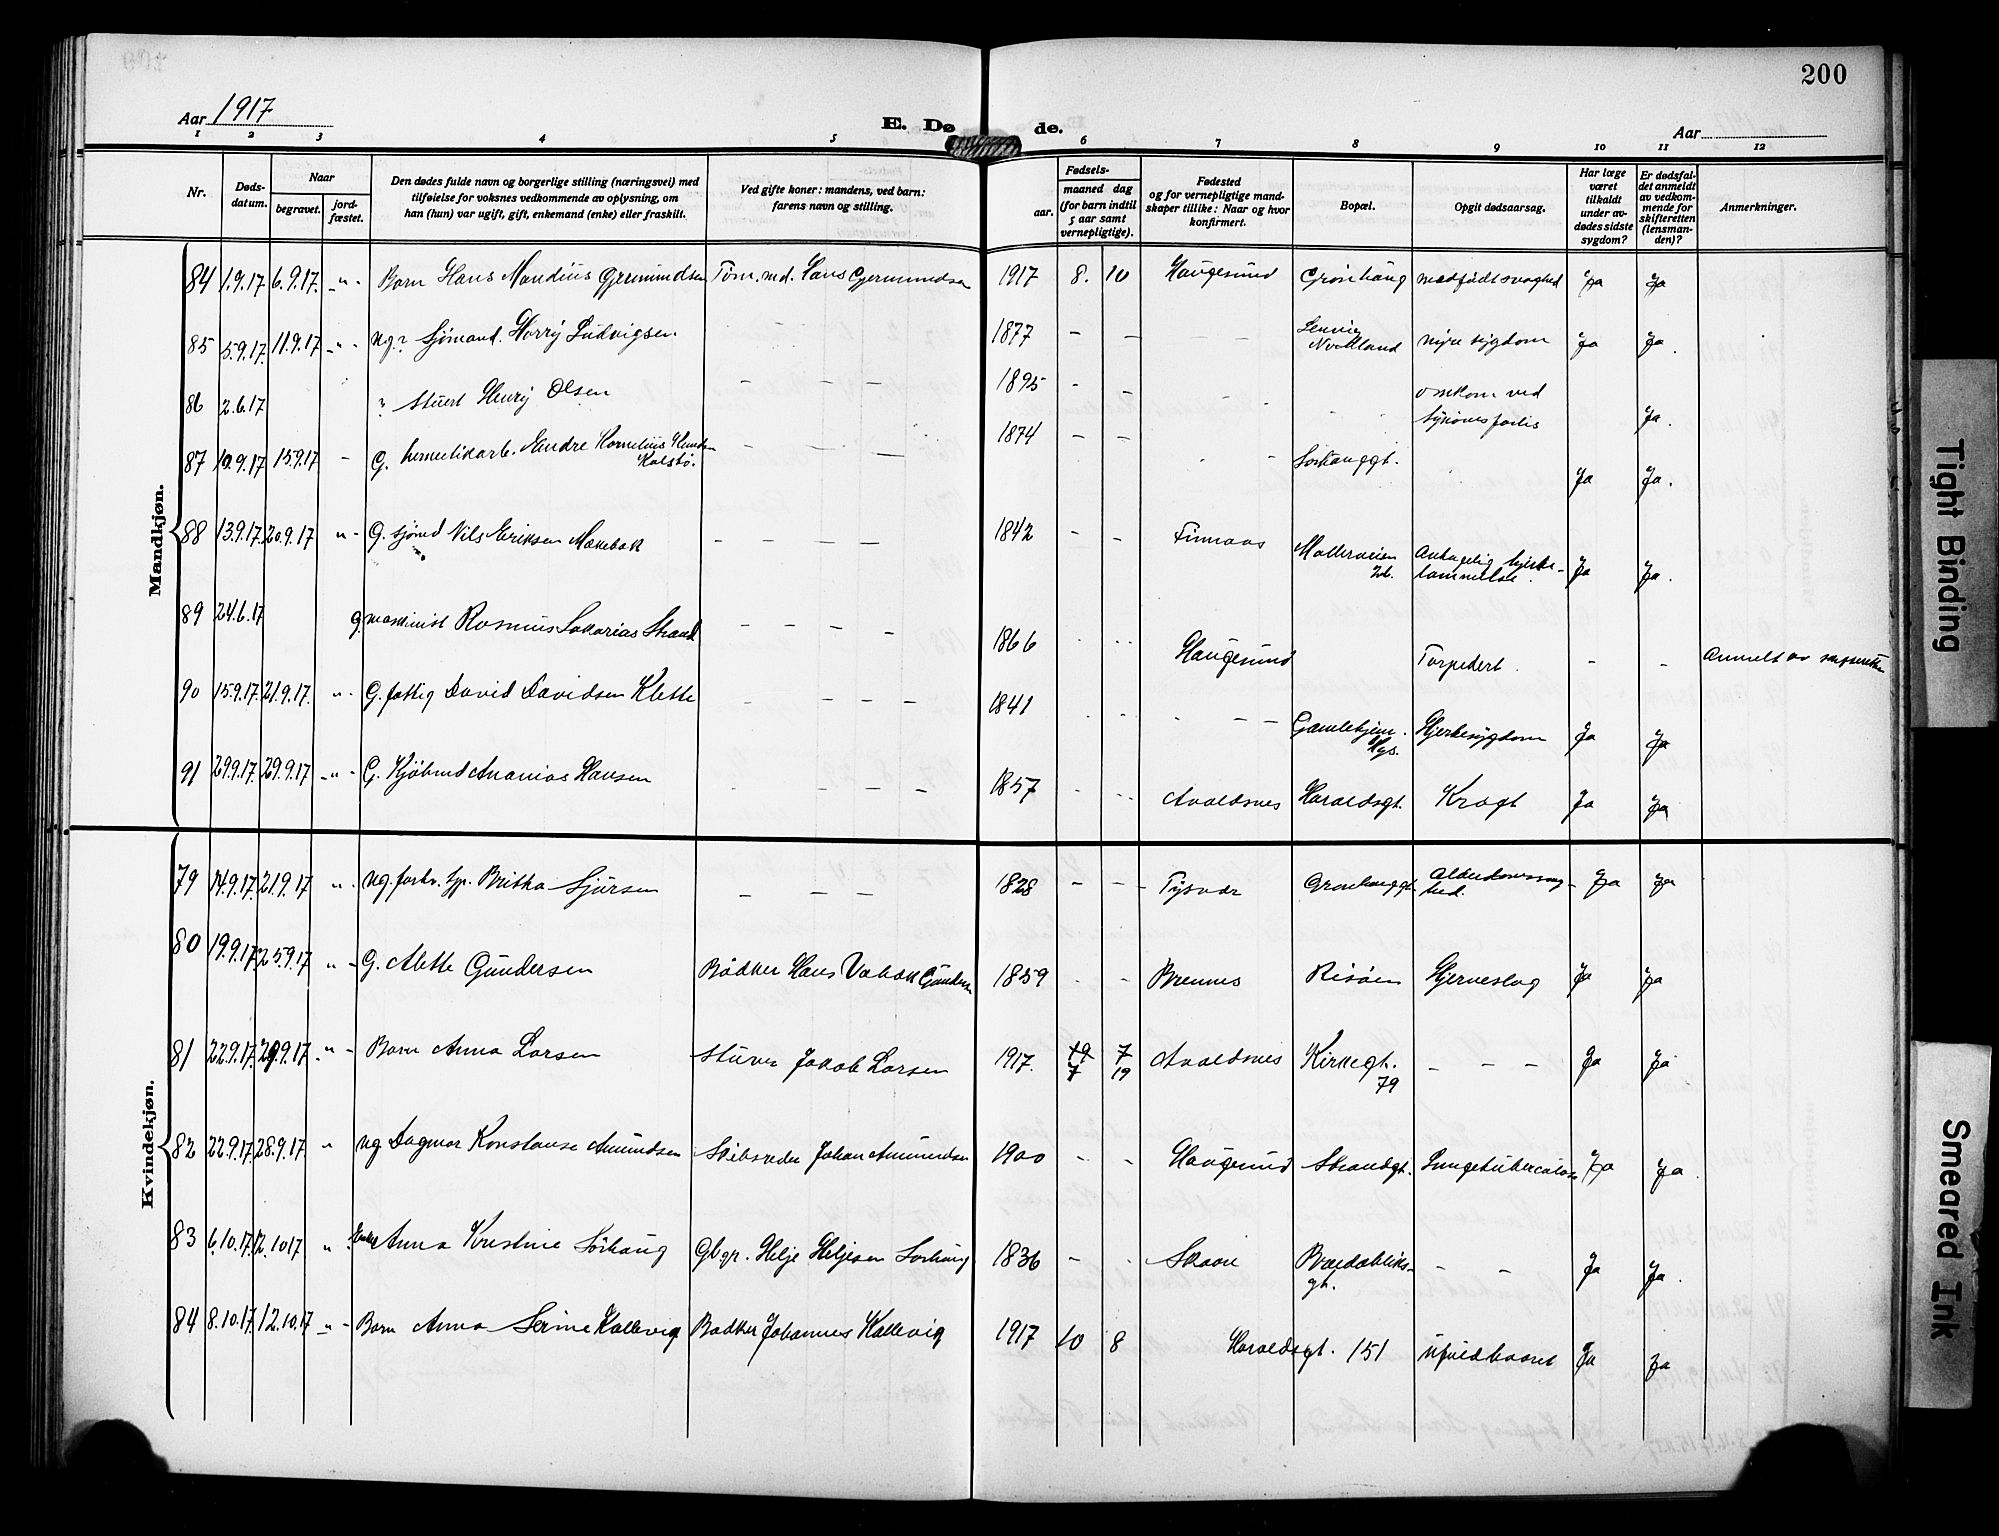 200
Aar 1917
E. Dø de.
Aar
1 2 3 4 5 6 7 8 9 10 11 12
Nr.
Døds-datum.
Naar
begravet.
jord-fæstet.
Den dødes fulde navn og borgerlige stilling (næringsvei) med tilføielse for voksnes vedkommende av oplysning, om han (hun) var ugift, gift, enkemand (enke) eller fraskilt.
Ved gifte koner: mandens, ved barn: farens navn og stilling.
Fødsels-
aar.
maaned dag (for barn indtil 5 aar samt vernepligtige).
Fødested og for vernepligtige mandskaper tillike: Naar og hvor konfirmert.
Bopæl.
Opgit dødsaarsag.
Har læge været tilkaldt under avdødes sidste sygdom?
Er dødsfaldet anmeldt av vedkommende for skifteretten (lensmanden)?
Anmerkninger.
Mandkjøn.
84 1.9.17 6.9.17. -"- Barn Hans Mandius Gjermundsen Tøm.md. Hans Gjermundsen 1917 8. 10 Haugesund Grønhaug medfødt svaghed Ja Ja
85 5.9.17. 11.9.17 -"- ug.? Sjömand. Harry Ludvigsen. 1877 - - - - - Lenvig Nordland nyre sygdom Ja Ja.
86 2.6.17 ? Stuert Henry Olsen - - - 1895 - - omkom ved Ja.
87 10.9.17 15.9.17 - G. hermetikarb. Endre Kornelius Kalstø. - - - 1874 - - Sørhauggt. Ja Ja.
88 13.9.17. 20.9.17 "- G. sjömd Nils Eriksen Mækebak - - - - 1842 - - Finnaas hjerte-lammelse. Ja Ja.
89 24.6.17 g. maskinist Rasmus Sakarias Strand - - - - 1866 Haugesund Torpedert. - - Anmelt av
90 15.9.17. 21.9.17. "- G. fattig David Davidsen Klette - - - - 1841 - - - Gamlehjem. Hgs. Hjertesygdom Ja Ja
91 29.9.17. 29.9.17 -"- G. Kjøbmd Ananias Hansen - - - - 1857 Avaldsnes Haraldsgt. Kræft Ja Ja
Kvindekjøn.
79 14.9.17. 21.9.17 "- ug. Britha Sjursen - - - 1828 - - - Tysvær Grønhauggt. Alderdomssvag-hed. Ja Ja
80 19.9.17. 25.9.17 "- G. Alette Gundersen Bødker Hans Gundersen 1859 - - Bremnes Risøen Hjerneslag Ja Ja
81 22.9.17. 29.9.17. "- Barn Anna Larsen Stuver Jakob Larsen 1917. 19 7 7 19 Avaldsnes Kirkegt. 79 - - - Ja Ja
82 22.9.17 28.9.17. " ug Dagmar Konstanse Amundsen Skibsreder Johan Amundsen 1900 - - Haugesund Strandgt. Lungetuberculose Ja Ja
83 6.10.17. 12.10.17 " Enke Anna Kristine Sørhaug Gbgr. Helje Heljesen Sørhaug 1836 - - Skaare Breidabliks-gt. - - Ja Ja.
84 8.10.17. 12.10.17 "- Barn Anna Serine Kallevig Bødker Johannes Kallevig 1917 10 8 Haraldsgt. 151 ufuldbaaret Ja Ja
Tight Binding
Smeared Ink